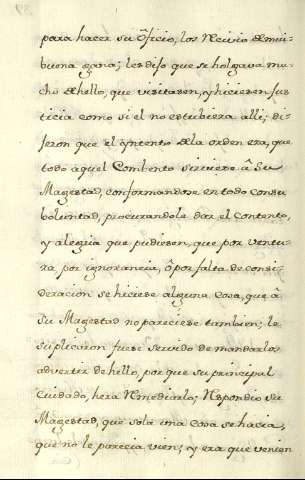 para hacer su Ôficio, los Recivio de mui
buena gana; les dijo que se holgava mu-
cho de hello, que visitasen, y hiciesen jus
ticia como si el no estubiera alli; di-
jeron que el yntento de la orden era, que
todo aquel Combento sirviese â Su
Magestad, conformandose en todo con su
boluntad, procurandole dar el Contento,
y alegria que pudiesen, que por ventu-
ra, por ignorancia, ô por falta de consi-
deracion se hiciese alguna Cosa, que â
Su Magestad no pareciese tambien; le
suplicaron fuese servido de mandarlos
advertir de hello, por que su principal
Cuidado, hera Remediarlo; Respondio su
Magestad, que sola una Cosa se hacia,
que no le parecia vien; y era que venian